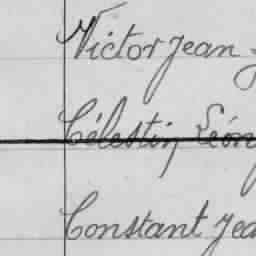 Victor Jean
Célestin Léon
Constant Jea